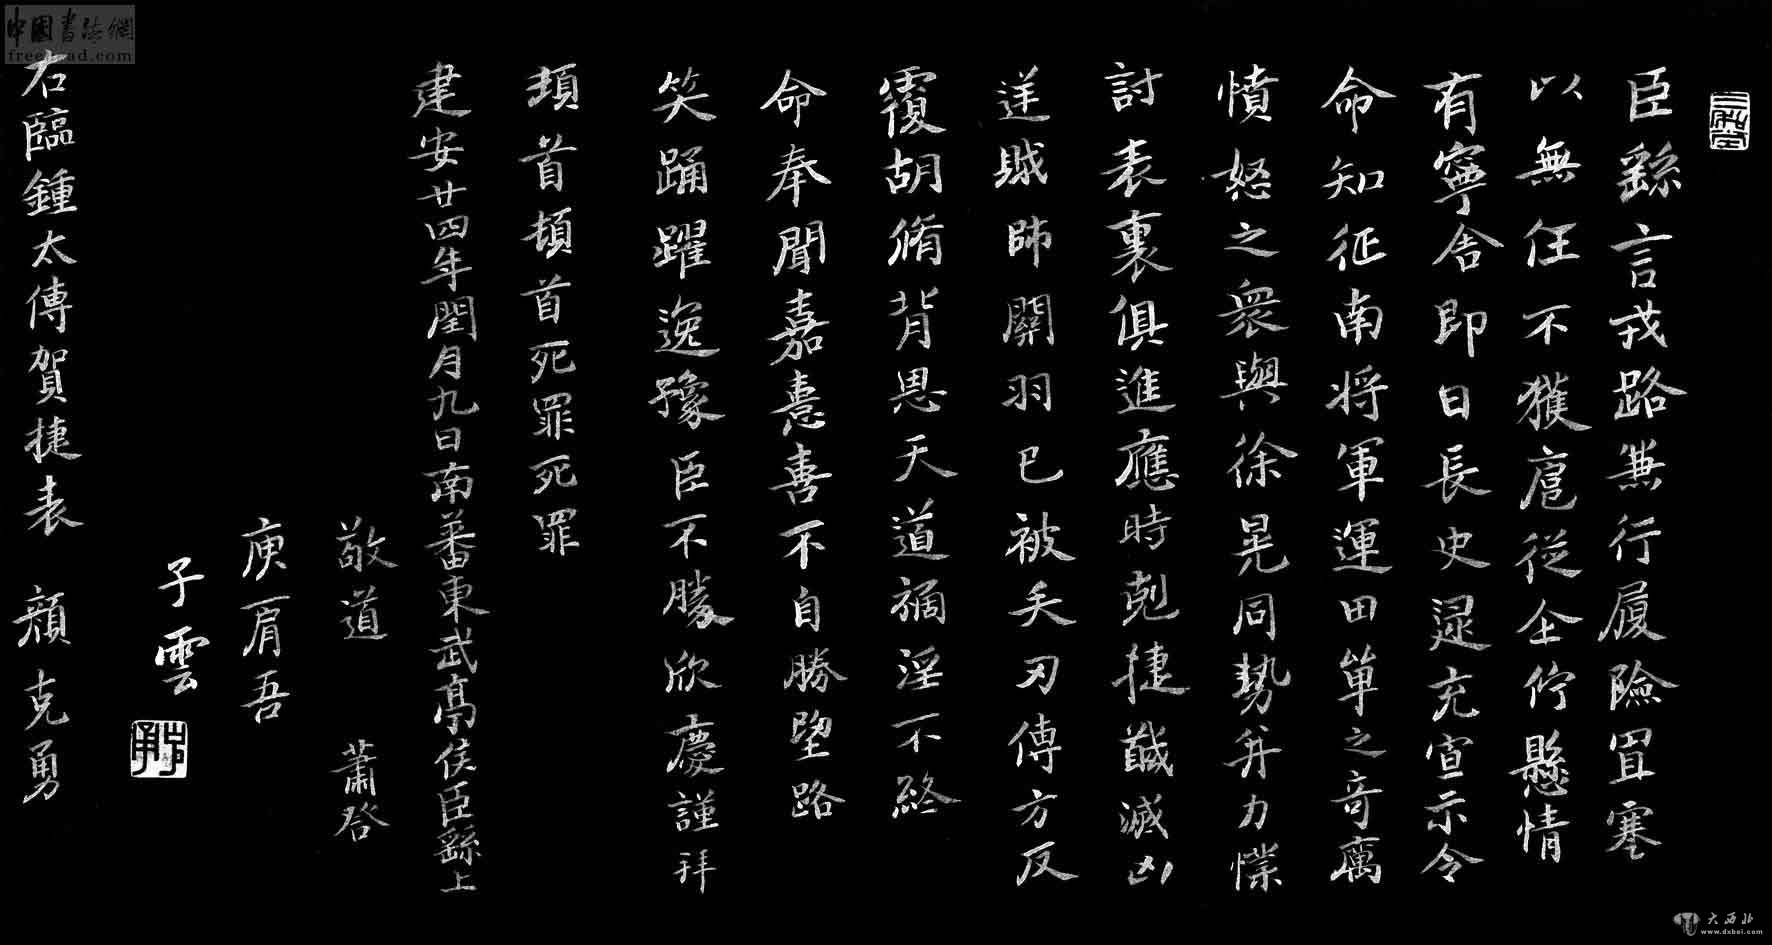 臣繇言戎路兼行履險冒寒
以無任不獲扈從企佇懸情
有寧舍即日長史逯充宣示令
命知征南將軍運田單之奇厲
憤怒之衆與徐晃同勢并力𢢔
討表裏俱進應時剋捷馘滅凶
逆賊帥關羽已被矢刃傳方反
覆胡脩背恩天道禍淫不終
命奉聞嘉憙喜不自勝望路
笑踊躍逸豫臣不勝欣慶謹拜
頓首頓首死罪死罪
建安廿四年閏月九日南蕃東武亭侯臣繇上
敬道 蕭啓
庾肩吾
子雲
右臨鍾太傅賀捷表 顏克勇
中國書法網
freehead.com
大西北
www.dxbei.com